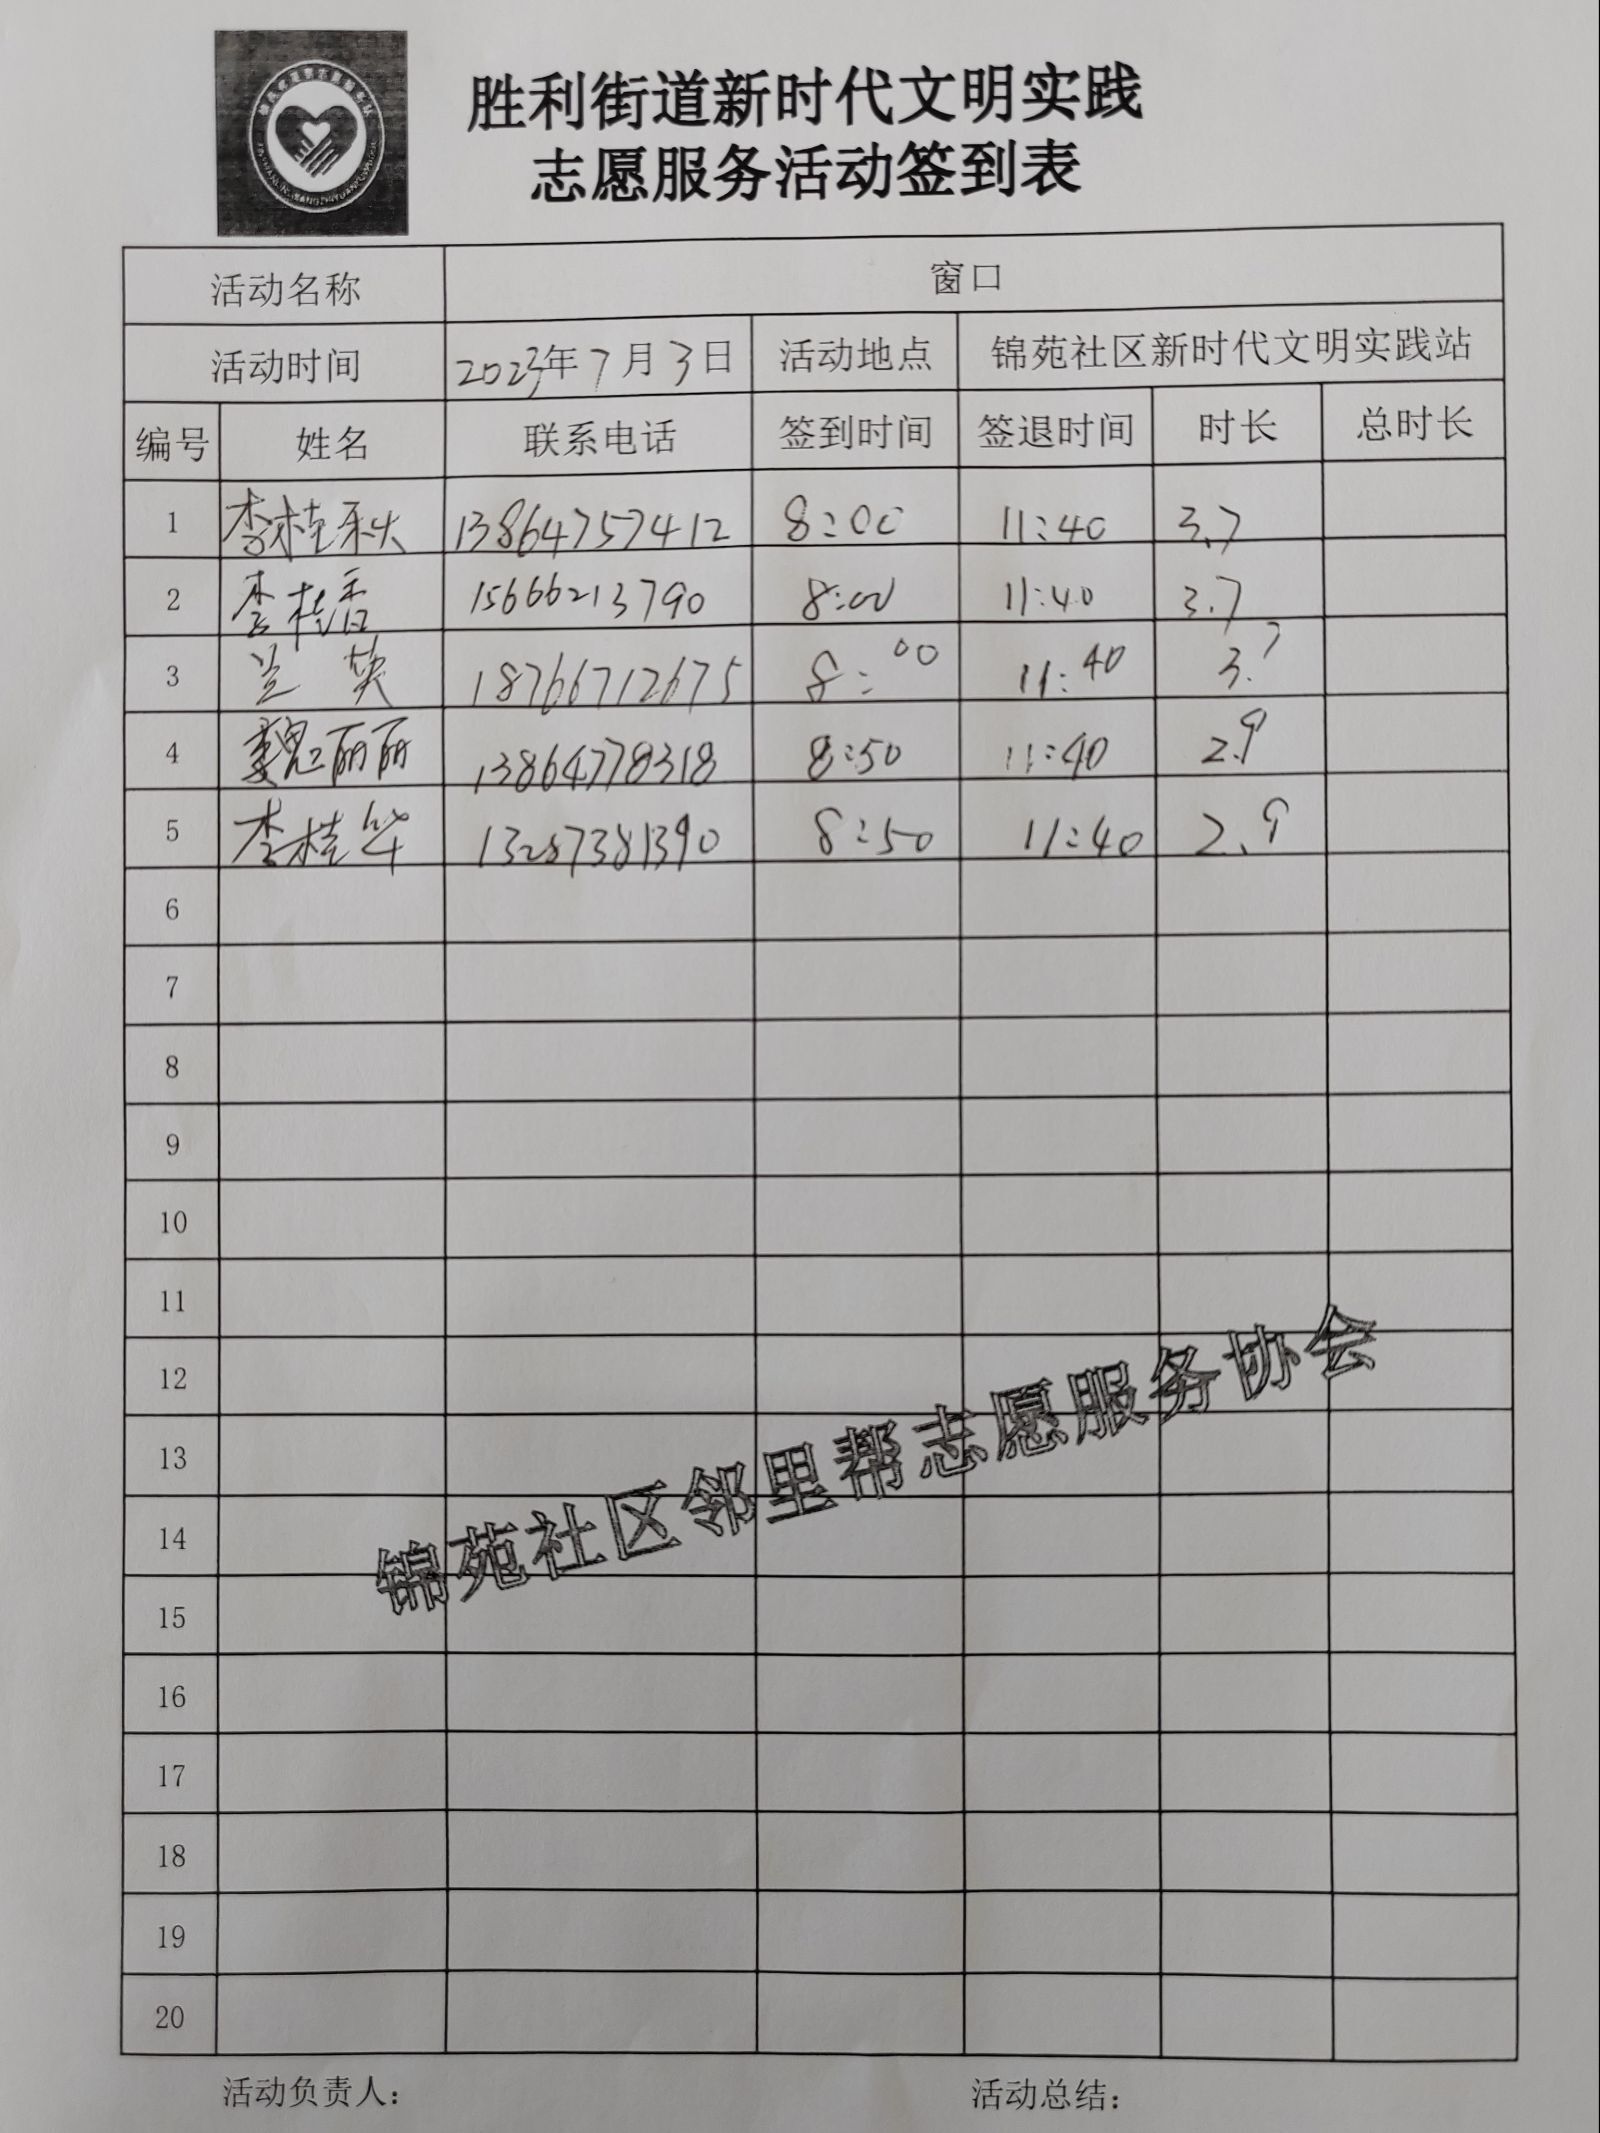 胜利街道新时代文明实践
志愿服务活动签到表
活动名称 窗口
活动时间 2023年7月3日 活动地点 锦苑社区新时代文明实践站
编号 姓名 联系电话 签到时间 签退时间 时长 总时长
1 李桂秋 13864757412 8:00 11:40 3.7
2 李桂香 15666213790 8:00 11:40 3.7
3 兰英 18766712675 8:00 11:40 3.7
4 魏丽丽 13864778318 8:50 11:40 2.9
5 李桂华 13287381390 8:50 11:40 2.9
6
7
8
9
10
11
12
13
14
15
16
17
18
19
20
锦苑社区邻里帮志愿服务协会
活动负责人： 活动总结：